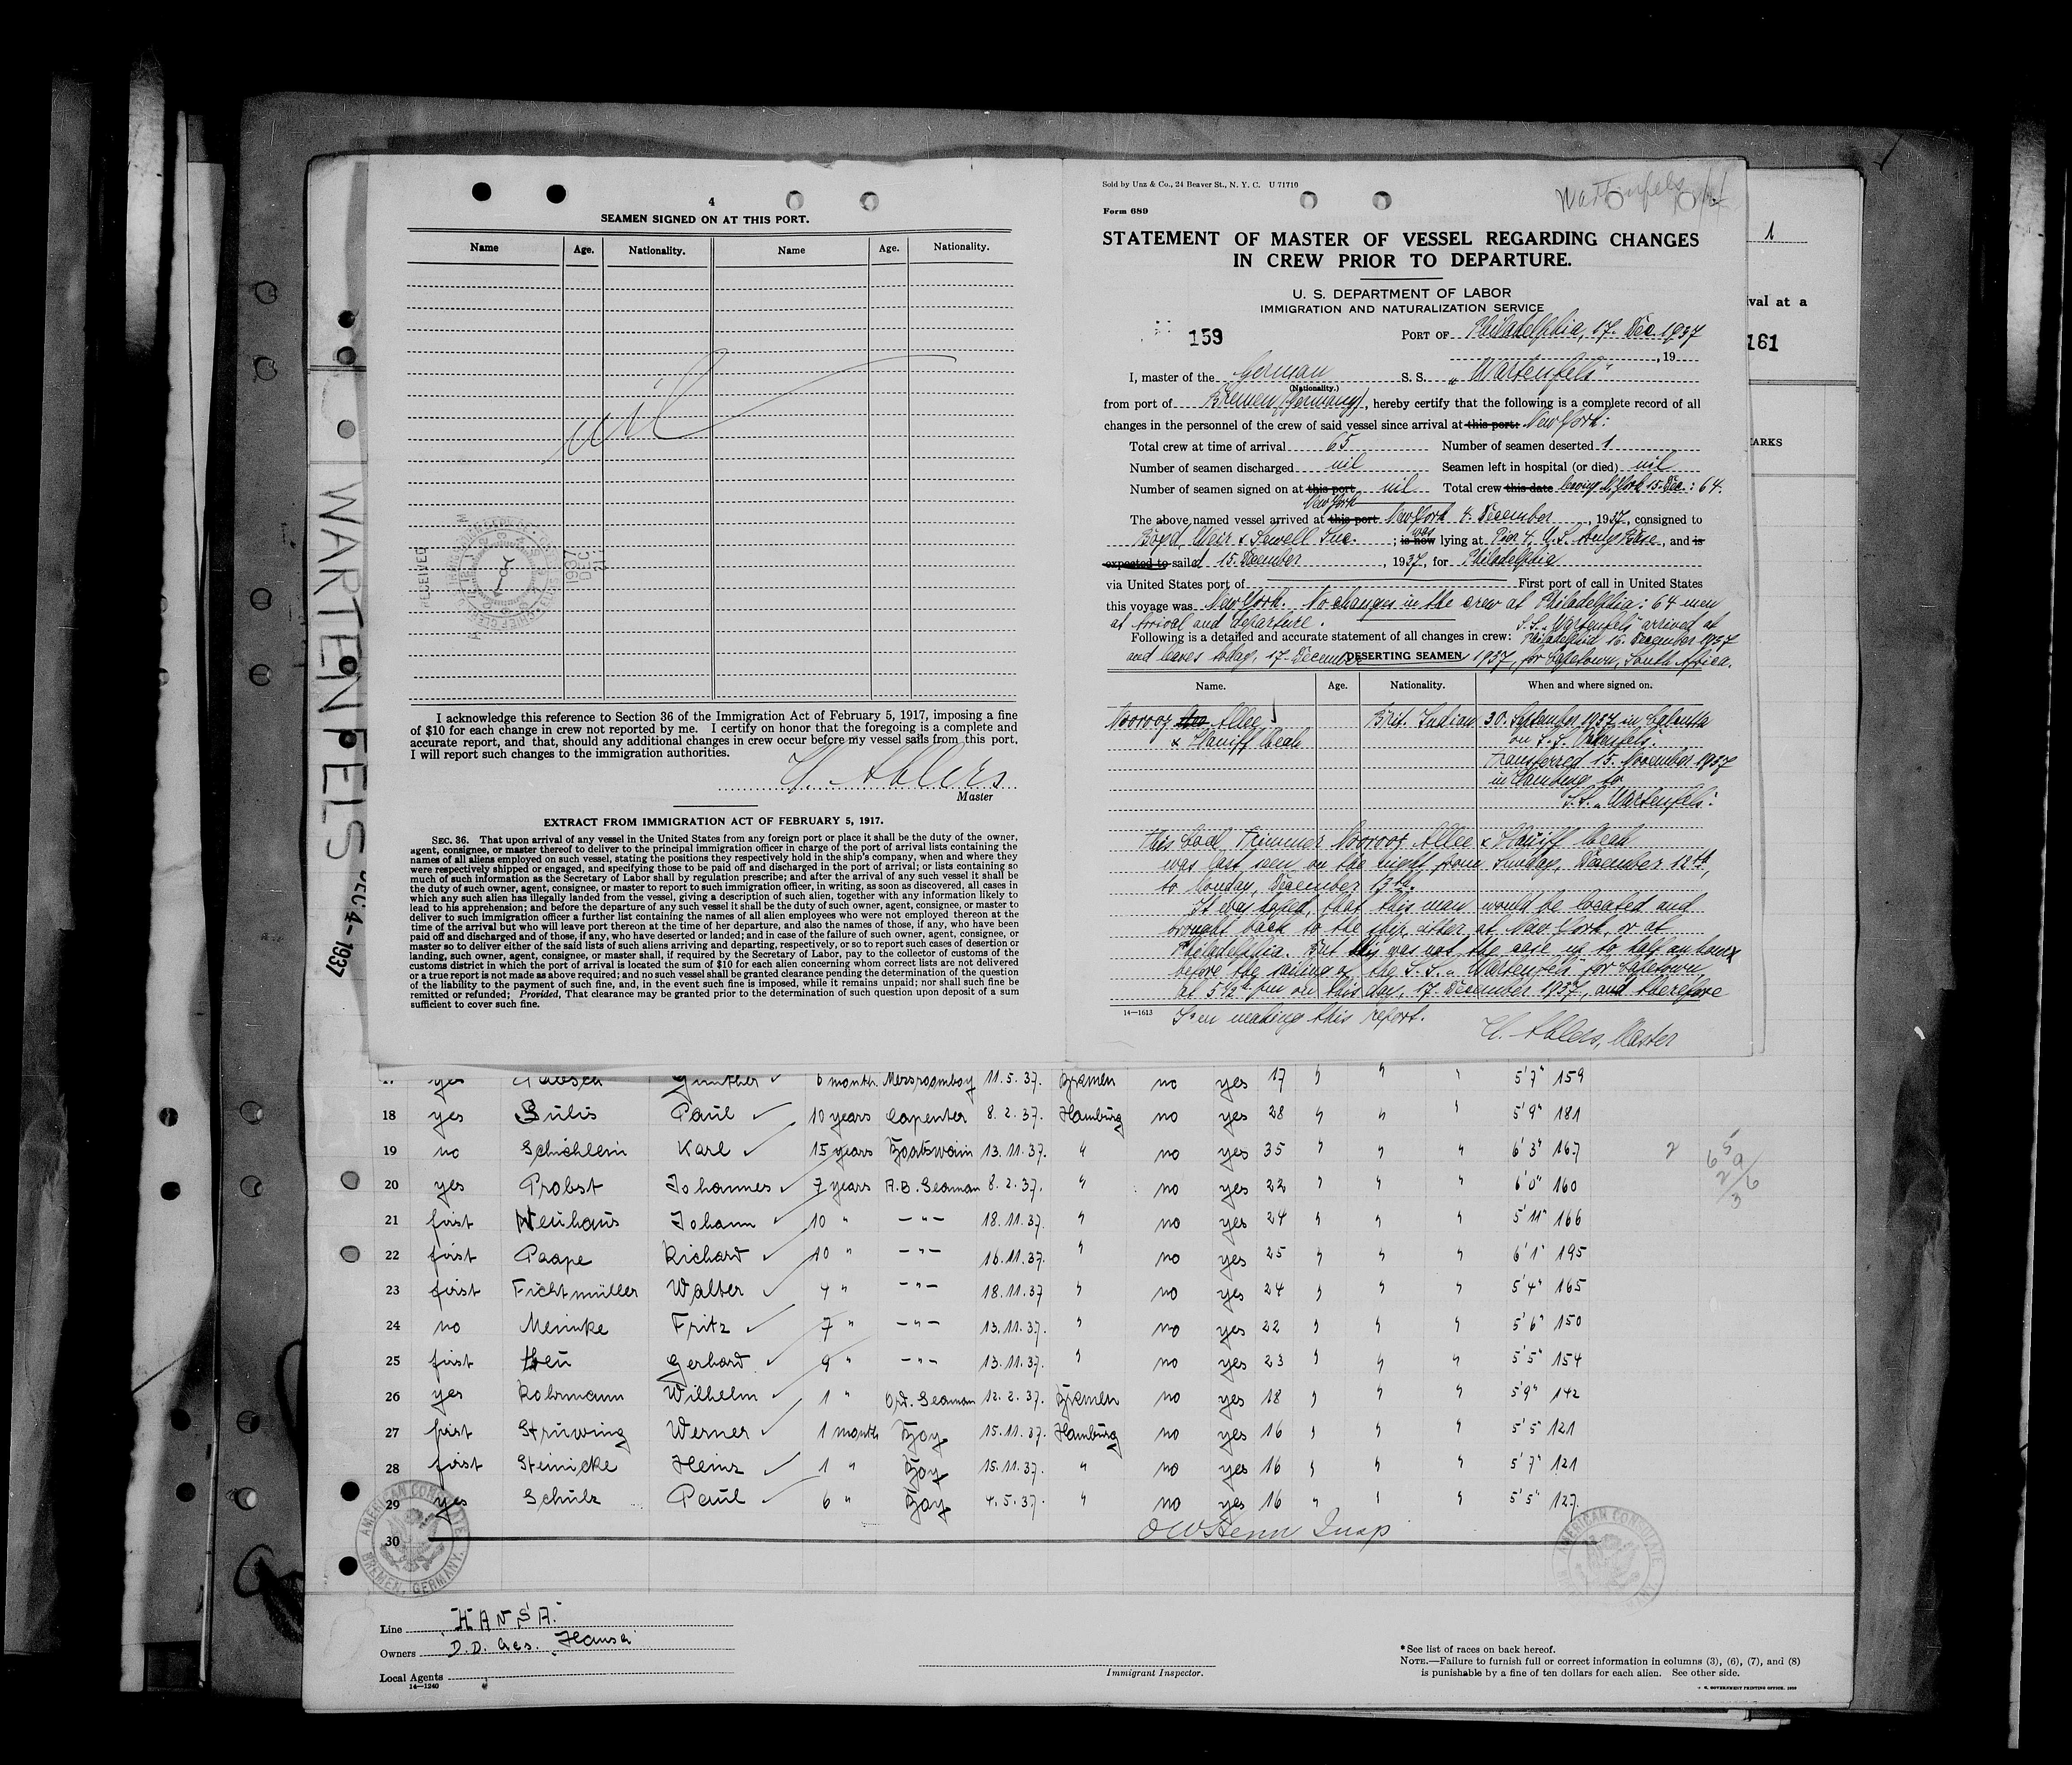 4
SEAMEN SIGNED ON AT THIS PORT.
Name Age. Nationality. Name Age. Nationality.
nil
RECEIVED
DEC 21 1937
I acknowledge this reference to Section 36 of the Immigration Act of February 5, 1917, imposing a fine
of $10 for each change in crew not reported by me. I certify on honor that the foregoing is a complete and
accurate report, and that, should any additional changes in crew occur before my vessel sails from this port,
I will report such changes to the immigration authorities.
H. Ahlers
Master
EXTRACT FROM IMMIGRATION ACT OF FEBRUARY 5, 1917.
SEC. 36. That upon arrival of any vessel in the United States from any foreign port or place it shall be the duty of the owner,
agent, consignee, or master thereof to deliver to the principal immigration officer in charge of the port of arrival lists containing the
names of all aliens employed on such vessel, stating the positions they respectively hold in the ship's company, when and where they
were respectively shipped or engaged, and specifying those to be paid off and discharged in the port of arrival; or lists containing so
much of such information as the Secretary of Labor shall by regulation prescribe; and after the arrival of any such vessel it shall be
the duty of such owner, agent, consignee, or master to report to such immigration officer, in writing, as soon as discovered, all cases in
which any such alien has illegally landed from the vessel, giving a description of such alien, together with any information likely to
lead to his apprehension; and before the departure of any such vessel it shall be the duty of such owner, agent, consignee, or master to
deliver to such immigration officer a further list containing the names of all alien employees who were not employed thereon at the
time of the arrival but who will leave port thereon at the time of her departure, and also the names of those, if any, who have been
paid off and discharged and of those, if any, who have deserted or landed; and in case of the failure of such owner, agent, consignee, or
master so to deliver either of the said lists of such aliens arriving and departing, respectively, or so to report such cases of desertion or
landing, such owner, agent, consignee, or master shall, if required by the Secretary of Labor, pay to the collector of customs of the
customs district in which the port of arrival is located the sum of $10 for each alien concerning whom correct lists are not delivered
or a true report is not made as above required; and no such vessel shall be granted clearance pending the determination of the question
of the liability to the payment of such fine, and, in the event such fine is imposed, while it remains unpaid; nor shall such fine be
remitted or refunded; Provided, That clearance may be granted prior to the determination of such question upon deposit of a sum
sufficient to cover such fine.
Sold by Unz & Co., 24 Beaver St., N. Y. C. U 71710
Wartenfels
Form 689
STATEMENT OF MASTER OF VESSEL REGARDING CHANGES
IN CREW PRIOR TO DEPARTURE.
U. S. DEPARTMENT OF LABOR
IMMIGRATION AND NATURALIZATION SERVICE
159 PORT OF Philadelphia, 17. Dec. 1937
, 19
I, master of the German S. S. „Wartenfels"
(Nationality.)
from port of Bremen (Germany), hereby certify that the following is a complete record of all
changes in the personnel of the crew of said vessel since arrival at this port: New York:
Total crew at time of arrival 65 Number of seamen deserted 1
Number of seamen discharged nil Seamen left in hospital (or died) nil
Number of seamen signed on at this port nil Total crew this date leaving N. York 15. Dec.: 64.
New York
The above named vessel arrived at this port New York 4. December, 1937, consigned to
Boyd, Weir & Sewell Inc. ; is now was lying at Pier 4, U.S. Army Base, and is
expected to sailed 15. December, 1937, for Philadelphia
via United States port of First port of call in United States
this voyage was New York. No changes in the crew at Philadelphia: 64 men
at arrival and departure. S.S. „Wartenfels" arrived at
Following is a detailed and accurate statement of all changes in crew: Philadelphia 16. December 1937
and leaves today, 17. December DESERTING SEAMEN 1937, for Capetown, South Africa.
Name. Age. Nationality. When and where signed on.
Nooroof Allee Brit. Indian 30. September 1937 in Calcutta
x Haniff Meah on S.S.
Transferred 15. November 1937
in Hamburg to
S.S. „Wartenfels".
This Coal Trimmer Nooroof Allee x Haniff Meah
was last seen on the night from Sunday, December 12th,
to Monday, December 13th.
It was hoped, that this man would be located and
brought back to the ship either at New York, or at
Philadelphia. But this was not the case up to half an hour
before the sailing of the S.S. „Wartenfels" for Capetown
at 5½h pm on this day, 17. December 1937, and therefore
14—1613 I'm making this report.
H. Ahlers, Master
1
val at a
161
ARKS
WARTENFELS DEC 4-1937
17 yes Günther 6 month Messroomboy 11.5.37. Bremen no yes 17 " " " 5'7" 159
18 yes Sulis Paul 10 years Capenter 8.2.37. Hamburg no yes 28 " " " 5'9" 181
19 no Schichlein Karl 15 years Boatswain 13.11.37. " no yes 35 " " " 6'3" 167
20 yes Probst Johannes 7 years A.B. Seaman 8.2.37. " no yes 22 " " " 6'0" 160
21 first Neuhaus Johann 10 " — " — 18.11.37. " no yes 24 " " " 5'11" 166
22 first Paape Richard 10 " — " — 16.11.37. " no yes 25 " " " 6'1" 195
23 first Fichtmüller Walter 4 " — " — 18.11.37 " no yes 24 " " " 5'4" 165
24 no Meinke Fritz 7 " — " — 13.11.37. " no yes 22 " " " 5'6" 150
25 first Heu Gerhard 9 " — " — 13.11.37. " no yes 23 " " " 5'5" 154
26 yes Rohrmann Wilhelm 1 " Ord. Seaman 12.2.37. Bremen no yes 18 " " " 5'9" 142
27 first Strüwing Werner 1 month Boy 15.11.37. Hamburg no yes 16 " " " 5'5 121
28 first Steinicke Heinz 1 " Boy 15.11.37. " no yes 16 " " " 5'7" 121
29 yes Schulz Paul 6 " Boy 4.5.37. " no yes 16 " " " 5'5" 127.
30 OW Henn Insp
AMERICAN CONSULATE
BREMEN, GERMANY.
AMERICAN CONSULATE
Line "HANSA."
Owners D.D. Ges. „Hansa"
Local Agents
14—1240
Immigrant Inspector.
*See list of races on back hereof.
NOTE.—Failure to furnish full or correct information in columns (3), (6), (7), and (8)
is punishable by a fine of ten dollars for each alien. See other side.